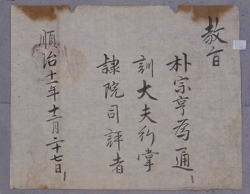 教旨
朴宗亨爲通
訓大夫行掌
隷院司評者
順治十一年十二月二十七日